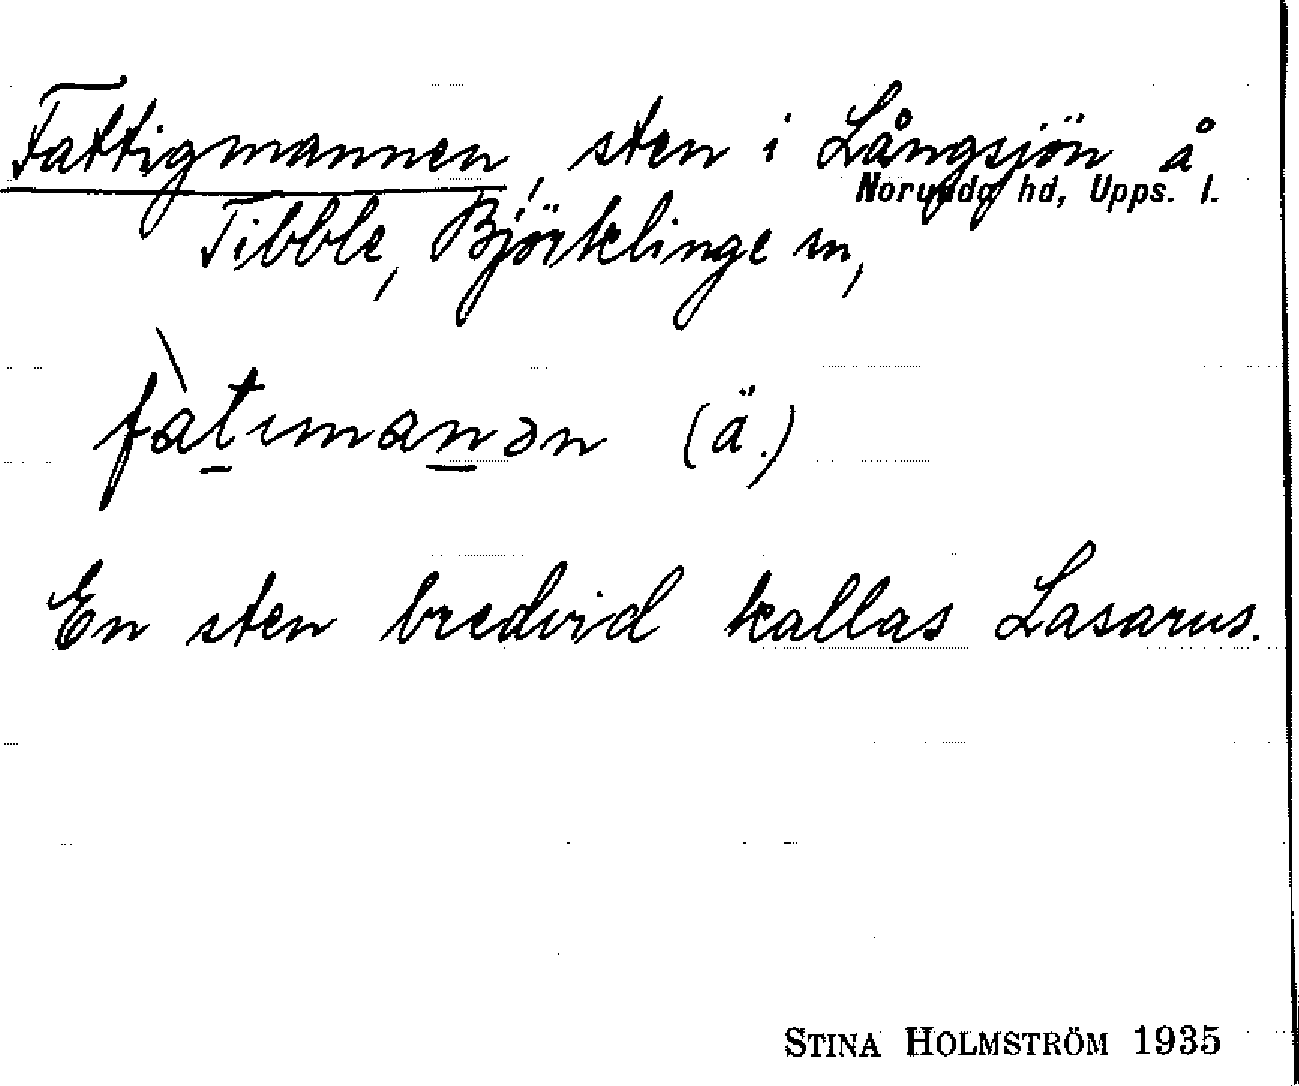 Fattigmannen, sten i Långsjön å
Norunda hd, Upps. l.
Tibble, Björklinge sn,
fàtımanən (ä.)
En sten bredvid kallas Lasarus.
STINA HOLMSTRÖM 1935